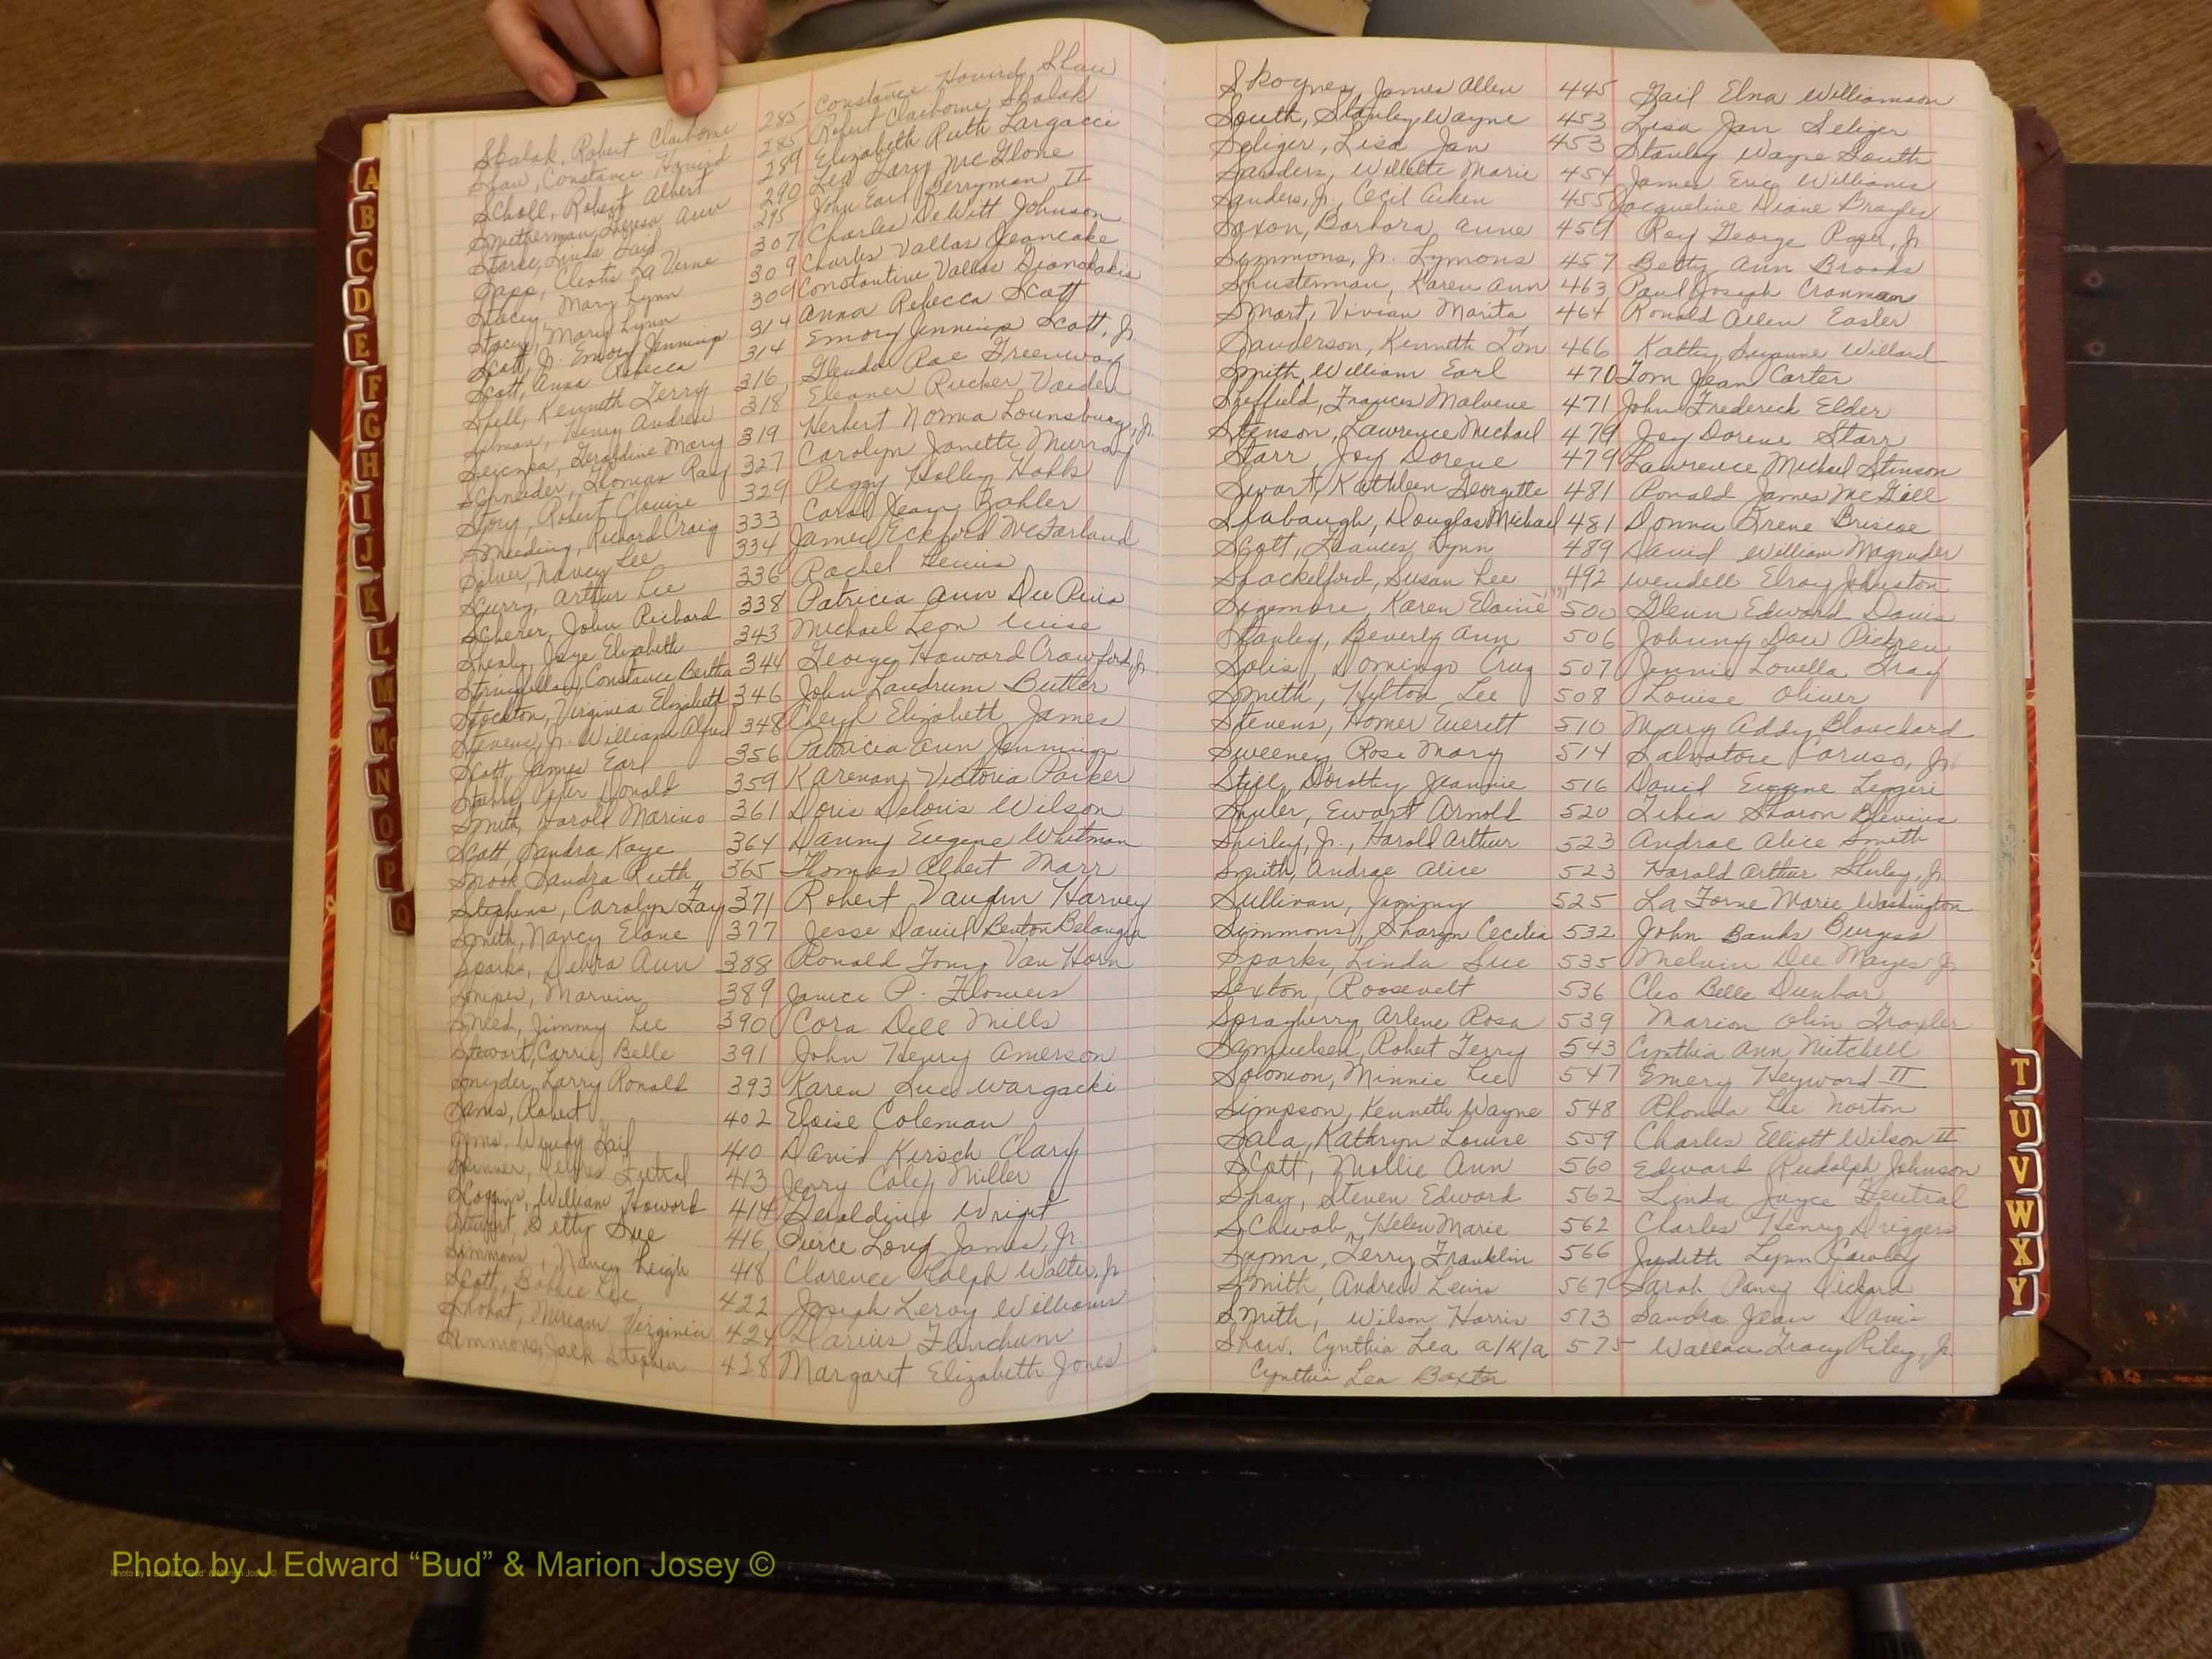 Skalak, Robert Claiborne 285 Constance Howird Shaw
Shaw, Constance Howird 285 Robert Claiborne Skalak
Scholl, Robert Albert 289 Elizabeth Ruth Largacci
Smitherman, Teresa Ann 290 Leo Larry McGlone
Starce, Linda Gail 295 John Earl Berryman II
Sapp, Cleotis La Verne 307 Charles DeWitt Johnson
Stacey, Mary Lynn 309 Charles Vallas Jeancake
Stacey, Mary Lynn 309 Constantine Vallas
Scott, Jr. Emory Jennings 314 Anna Rebecca Scott
Scott, Anna Rebecca 314 Emory Jennings Scott, Jr.
Spell, Kenneth Terry 316 Glenda Rae Greenway
Henry Andrew 318 Eleanor Rucker Vaiden
Geraldine Mary 319 Herbert Norma Lounsbury, Jr.
Schneider, Thomas Ray 327 Carolyn Janette Murray
Story, Robert Clovire 329 Peggy Hollen Hobbs
Smeeding, Richard Craig 333 Carol Jean Bohler
Silver, Nancy Lee 334 James Eckford McFarland
Scurry, Arthur Lee 336 Rachel Lewis
Scherer, John Richard 338 Patricia Ann
Shealy, Jaye Elizabeth 343 Michael Leon Wise
Stringfellow, Constance Bertha 344 George Howard Crawford, Jr.
Stockton, Virginia Elizabeth 346 John Landrum Butler
Stevens, Jr. William Alfred 348 Cheryl Elizabeth James
Scott, James Earl 356 Patricia Ann Jennings
Donald 359 Karenan Victoria Parker
Smith, Harold Marino 361 Doris Deloris Wilson
Scott, Sandra Kaye 364 Danny Eugene Whitman
Snook, Sandra Ruth 365 Thomas Albert Marr
Stephens, Carolyn Fay 371 Robert Vaughn Harvey
Smith, Nancy Elane 377 Jesse David Benton Belangia
Sparks, Debra Ann 388 Ronald Tony Van Horn
Sniper, Marvin 389 Janice P. Flowers
Sneed, Jimmy Lee 390 Cora Dell Mills
Stewart, Carrie Belle 391 John Henry Amerson
Snyder, Larry Ronald 393 Karen Sue Wargacki
Sams, Robert 402 Eloise Coleman
Sims, Wendy Gail 410 David Kirsch Clary
Skinner, 413 Jerry Coley Miller
Scoggins, William Howard 414 Geraldine Wright
Betty Sue 416 Pierce Long James, Jr.
Simmons, Nancy Leigh 418 Clarence Ralph Walter, Jr.
Scott, Bonnie Lee 422 Joseph Leroy Williams
Shokat, Miriam Virginia 424 Darius Flinchum
Sammons, Jack Stephen 428 Margaret Elizabeth Jones
Skognes, James Allen 445 Gail Elna Williamson
South, Stanley Wayne 453 Lisa Jan Seliger
Seliger, Lisa Jan 453 Stanley Wayne South
Sanders, Willette Marie 454 James Eric Williams
Sanders, Jr., Cecil Aiken 455 Jacqueline Diane
Saxon, Barbara Anne 457 Roy George Roper, Jr.
Simmons, Jr. Lymons 457 Betty Ann Brooks
Shusterman, Karen Ann 463 Paul Joseph Cranman
Smart, Vivian Marita 464 Ronald Allen Easler
Sanderson, Kenneth Lon 466 Kathy Suzanne Willard
Smith, William Earl 470 Tom Jean Carter
Sheffield, Frances Malvene 471 John Frederick Elder
Stenson, Lawrence Michael 479 Joy Dorene Starr
Starr, Joy Dorene 479 Lawrence Michael Stinson
Swart, Kathleen Georgette 481 Ronald James McGill
Slabaugh, Douglas Michael 481 Donna Irene Briscoe
Scott, Frances Lynn 489 David William Magruder
Shackelford, Susan Lee 492 Wendell Elroy Johnston
Sizemore, Karen Elaine 500 Glenn Edward Davis
Stanley, Beverly Ann 506 Johnny Dow Pickren
Solis, Domingo Cruz 507 Jennie Louella Gray
Smith, Hylton Lee 508 Louise Oliver
Stevens, Homer Everett 510 Mary Addy Blanchard
Sweeney, Rose Mary 514 Salvatore Caruso, Jr.
Still, Dorothy Jeannie 516 David Eugene Leggeri
Shuler, Ewart Arnold 520 Libia Sharon Blevins
Shirley, Jr., Harold Arthur 523 Andrae Alice Smith
Smith, Andrae Alice 523 Harold Arthur Shirley, Jr.
Sullivan, Jimmy 525 La Forne Marie Washington
Simmons, Sharon Cecilia 532 John Banks Burgess
Sparks, Linda Sue 535 Melvin Dee Mayes Jr
Sexton, Roosevelt 536 Cleo Belle Dunbar
Sprayberry, Arlene Rosa 539 Marion Olin Traxler
Samuelsen, Robert Terry 543 Cynthia Ann Mitchell
Solomon, Minnie Lee 547 Emery Heyward II
Simpson, Kenneth Wayne 548 Rhonda Lee Norton
Sala, Kathryn Louise 559 Charles Elliott Wilson II
Scott, Mollie Ann 560 Edward Rudolph Johnson
Shay, Steven Edward 562 Linda Joyce Deutral
Schwab, Helen Marie 562 Charles Henry Driggers
Syms, Terry Franklin 566 Judith Lynn Cawley
Smith, Andrew Lewis 567 Sarah Pansy Dickard
Smith, Wilson Harris 573 Sandra Jean Davis
Show, Cynthia Lea a/k/a 575 Wallace Tracy Riley, Jr.
Cynthia Lea Baxter
A
B
C
D
E
F
G
H
I
J
K
L
M
Mc
N
O
P
Q
T
U
V
W
X
Y
Photo by J Edward “Bud” & Marion Josey ©
Photo by J Edward “Bud” & Marion Josey ©